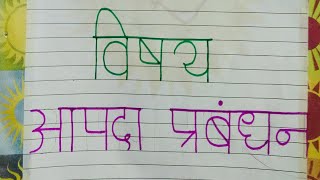 विषय
आपदा प्रबंधन